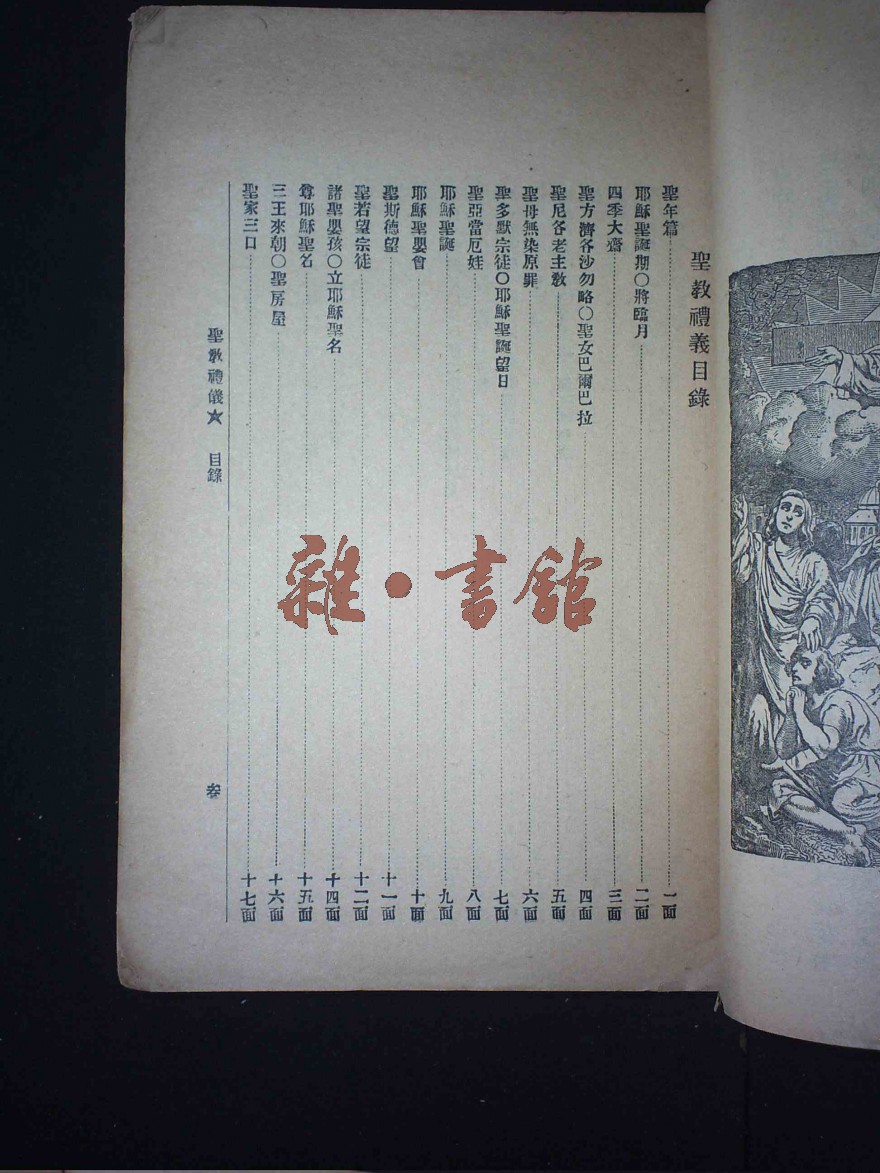 聖教禮義目錄
聖年篇 一面
耶穌聖誕期〇將臨月 二面
四季大齋 三面
聖方濟各沙勿略〇聖女巴爾巴拉 四面
聖尼各老主教 五面
聖母無染原罪 六面
聖多默宗徒〇耶穌聖誕望日 七面
聖亞當厄娃 八面
耶穌聖誕 九面
耶穌聖嬰會 十面
聖斯德望 十一面
聖若望宗徒 十二面
諸聖嬰孩〇立耶穌聖名 十四面
尊耶穌聖名 十五面
三王來朝〇聖房屋 十六面
聖家三口 十七面
聖教禮儀★ 目錄 叁
雜·書館